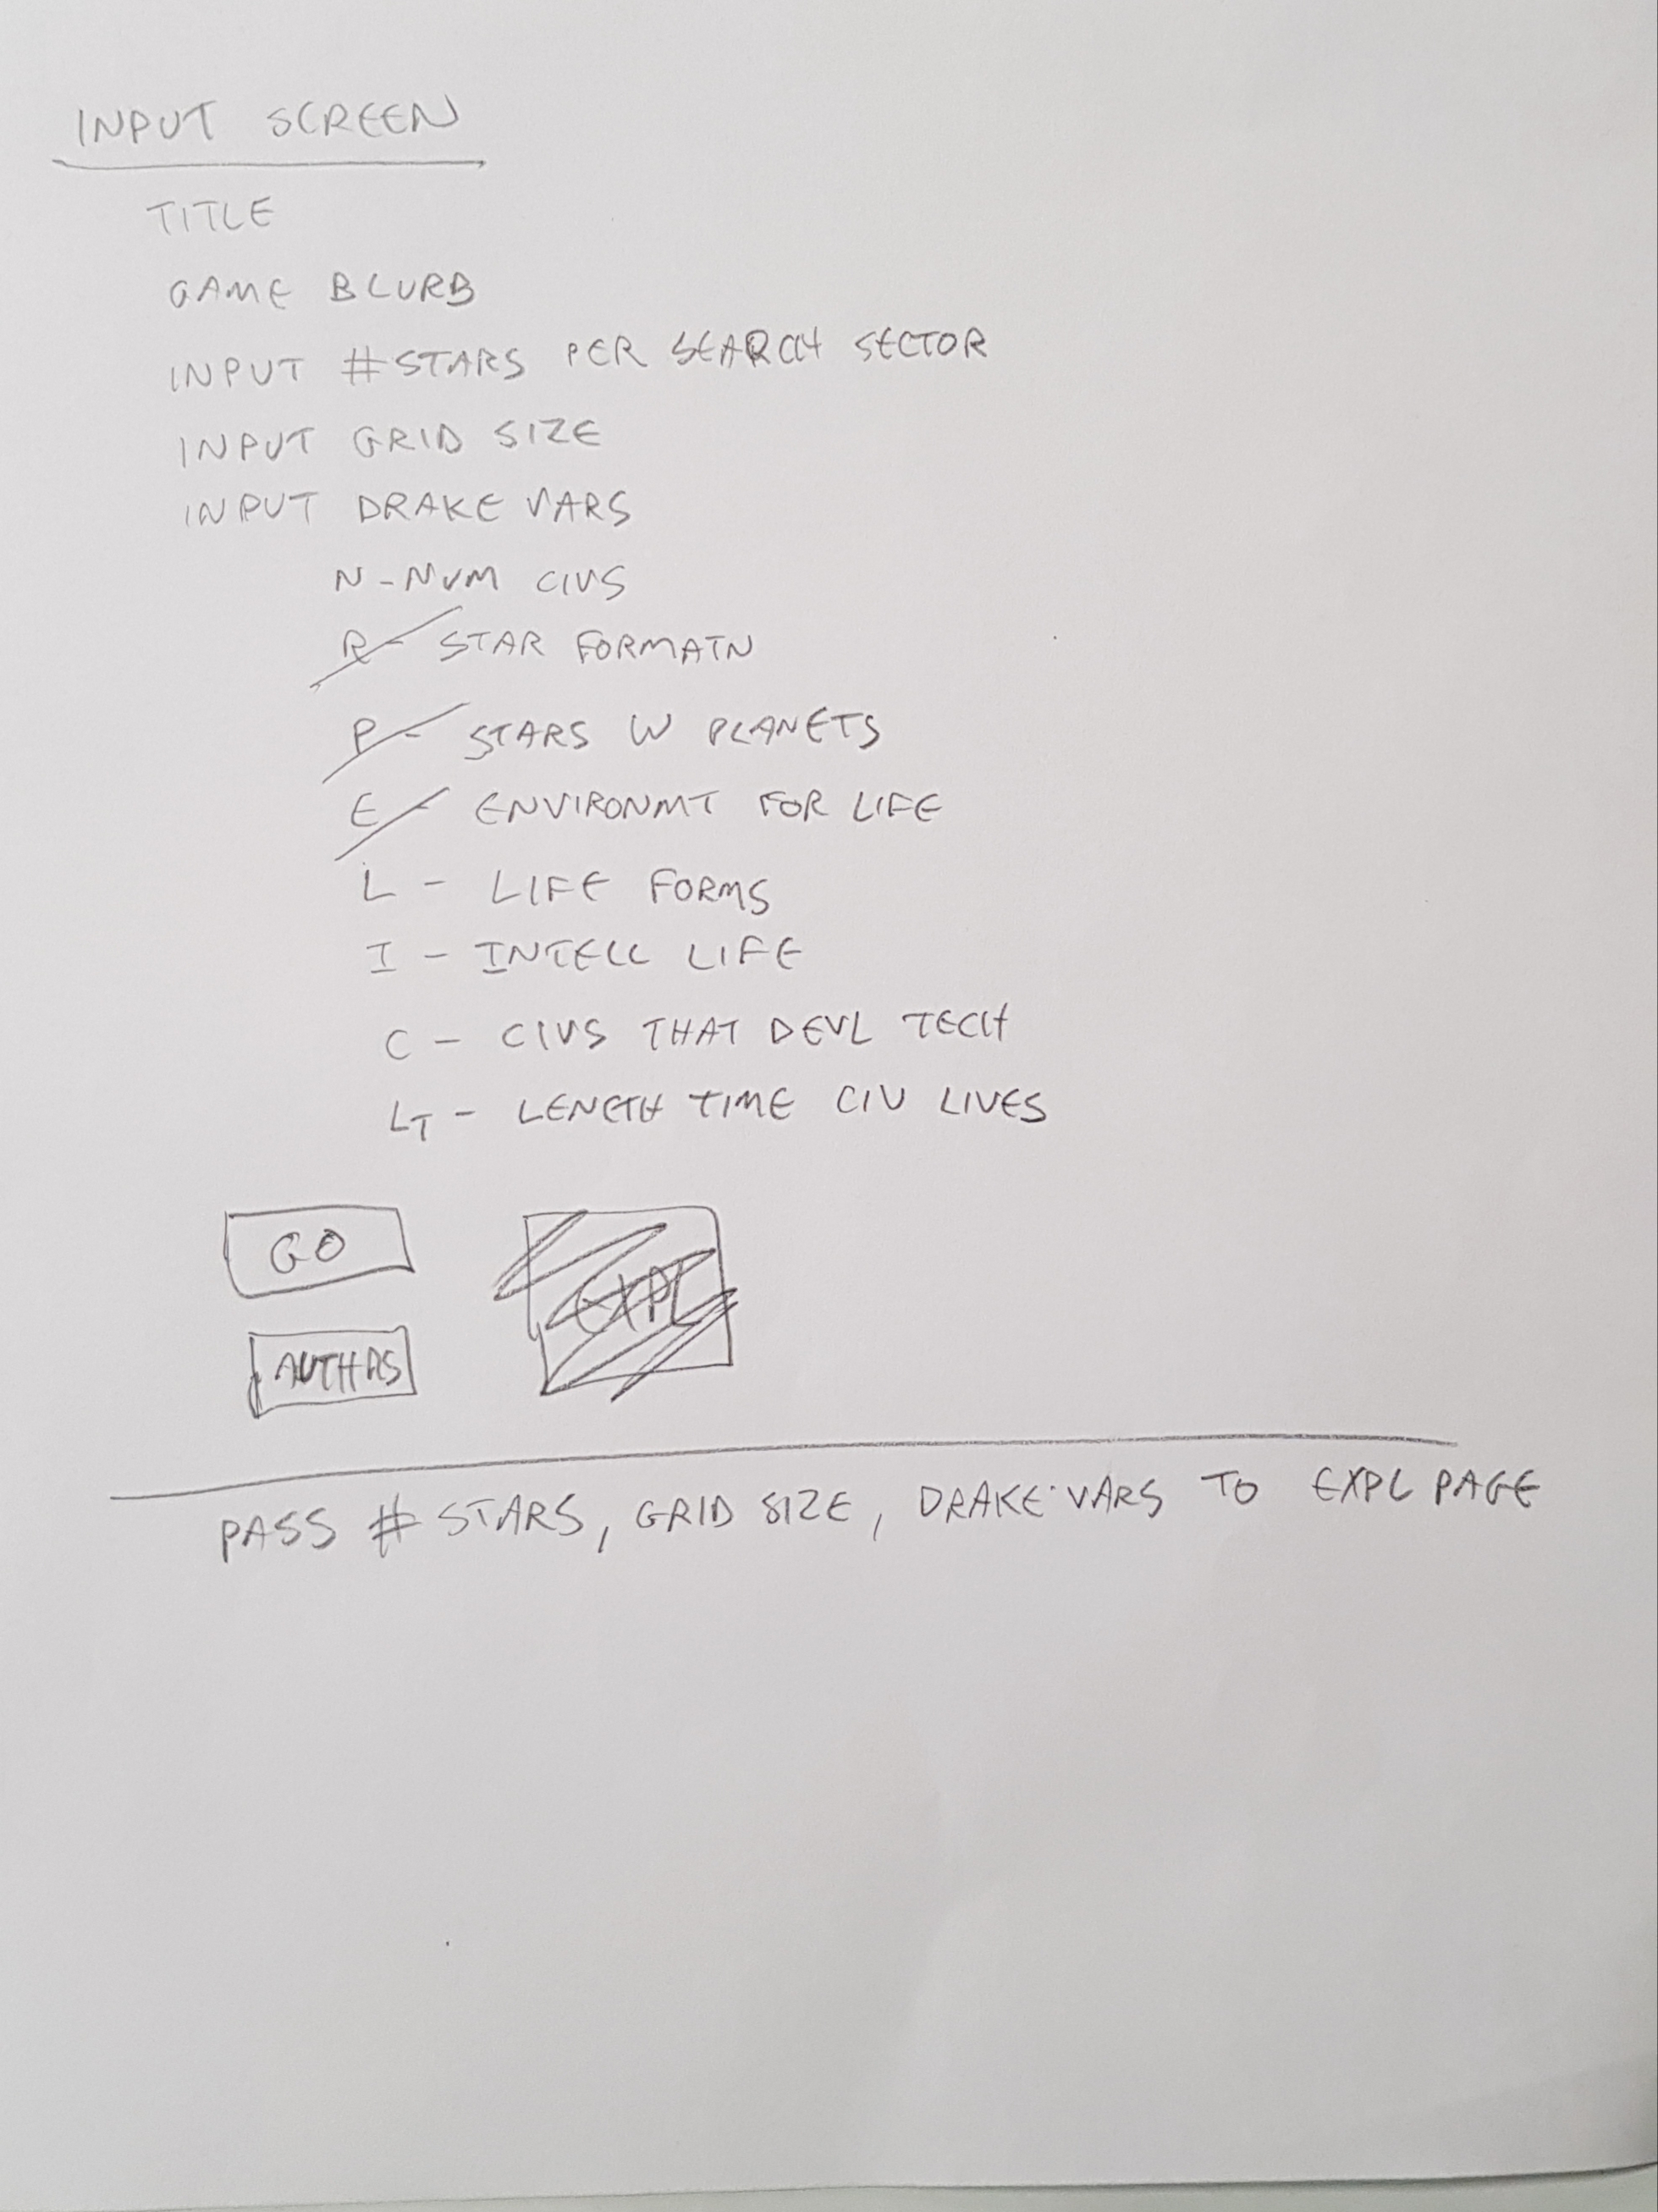 INPUT SCREEN
TITLE
GAME BLURB
INPUT #STARS PER SEARCH SECTOR
INPUT GRID SIZE
INPUT DRAKE VARS
N - NUM CIVS
R - STAR FORMATN
P - STARS W PLANETS
E - ENVIRONMT FOR LIFE
L - LIFE FORMS
I - INTELL LIFE
C - CIVS THAT DEVL TECH
LT - LENGTH TIME CIV LIVES
GO
EXPL
AUTHRS
PASS # STARS, GRID SIZE, DRAKE VARS TO EXPL PAGE